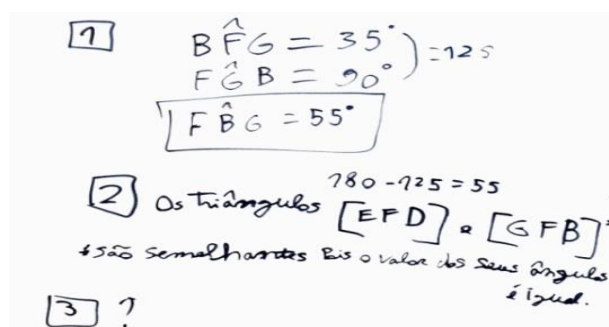 1 BF̂G = 35° ) = 125
FĜB = 90°
FB̂G = 55°
180 - 125 = 55
2 Os triângulos [EFD] e [GFB]
são semelhantes Pois o valor dos seus ângulos
é igual.
3 ?